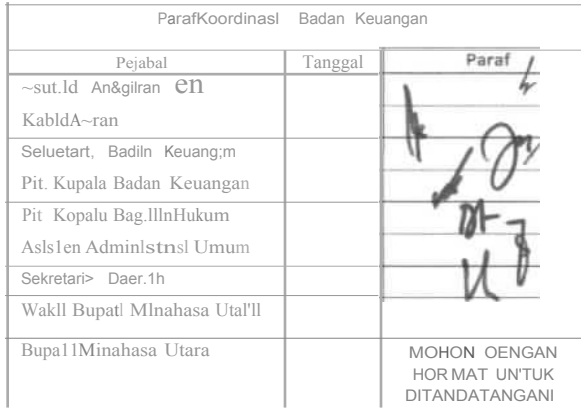 ParafKoordinasl Badan Keuangan
Pejabal Tanggal Paraf
~sut.ld An&gilran en
KabldA~ran
Seluetart, Badiln Keuang;m
Pit. Kupala Badan Keuangan
Pit Kopalu Bag.lllnHukum
Asls1en Adminlstnsl Umum
Sekretari> Daer.1h
Wakll Bupatl Mlnahasa Utal'll
Bupa11Minahasa Utara
MOHON OENGAN
HOR MAT UN'TUK
DITANDATANGANI